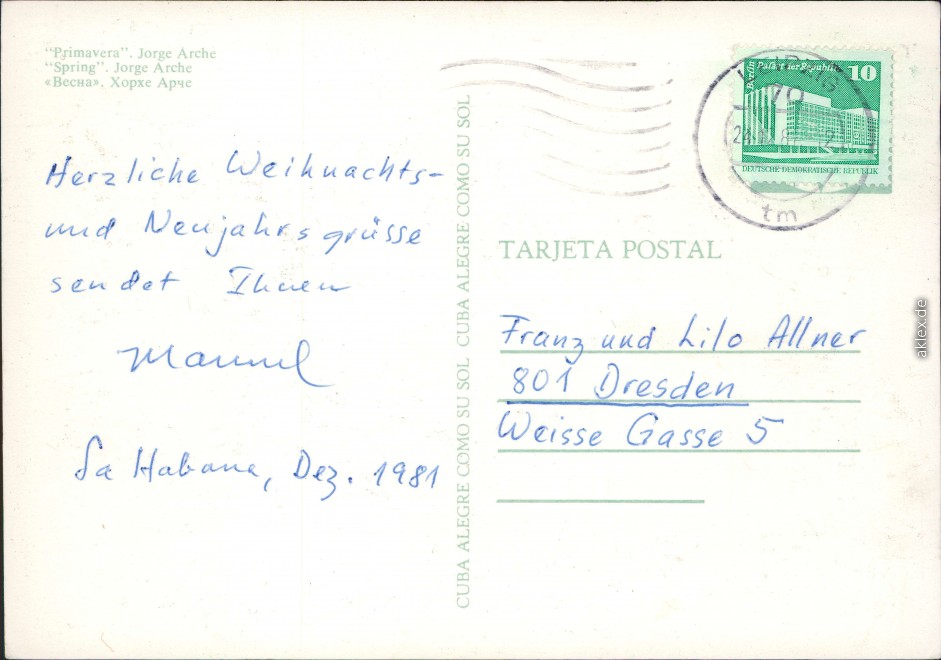 “Primavera”. Jorge Arche
“Spring”. Jorge Arche
«Весна». Хорхе Арче
Herzliche Weihnachts-
und Neujahrsgrüsse
sendet Ihnen
Manuel
La Habana, Dez. 1981
CUBA ALEGRE COMO SU SOL CUBA ALEGRE COMO SU SOL
LEIPZIG
70
tm
Berlin Palast der Republik 10
DEUTSCHE DEMOKRATISCHE REPUBLIK
TARJETA POSTAL
Franz und Lilo Allner
801 Dresden
Weisse Gasse 5
aklex.de